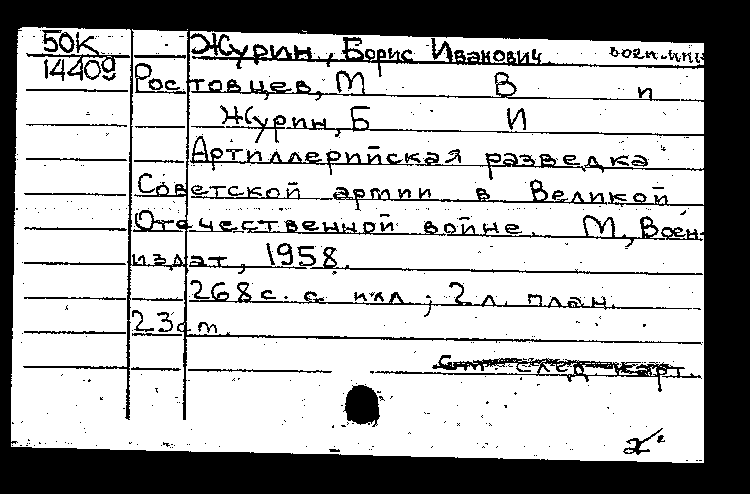 50К Журин, Борис Иванович. воен.инж
14409 Ростовцев, М В п
Журин, Б И
Артиллерийская разведка
Советской армии в Великой
Отечественной войне. М., Воен-
издат, 1958.
268 с. с илл.; 2 л. план.
23 cm.
См след. карт.